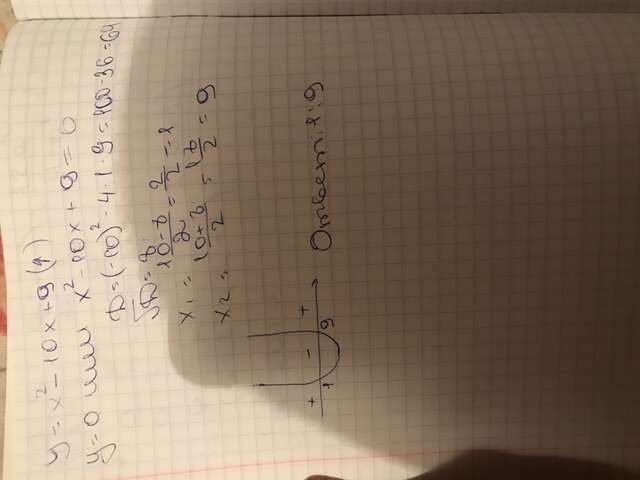 y = x² - 10x + 9 (↑)
y = 0 или x² - 10x + 9 = 0
D = (-10)² - 4·1·9 = 100 - 36 = 64
√D = 8.
x₁ = (10-8)/2 = 2/2 = 1
x₂ = (10+8)/2 = 18/2 = 9
+ - +
1 9
Ответ: 1; 9